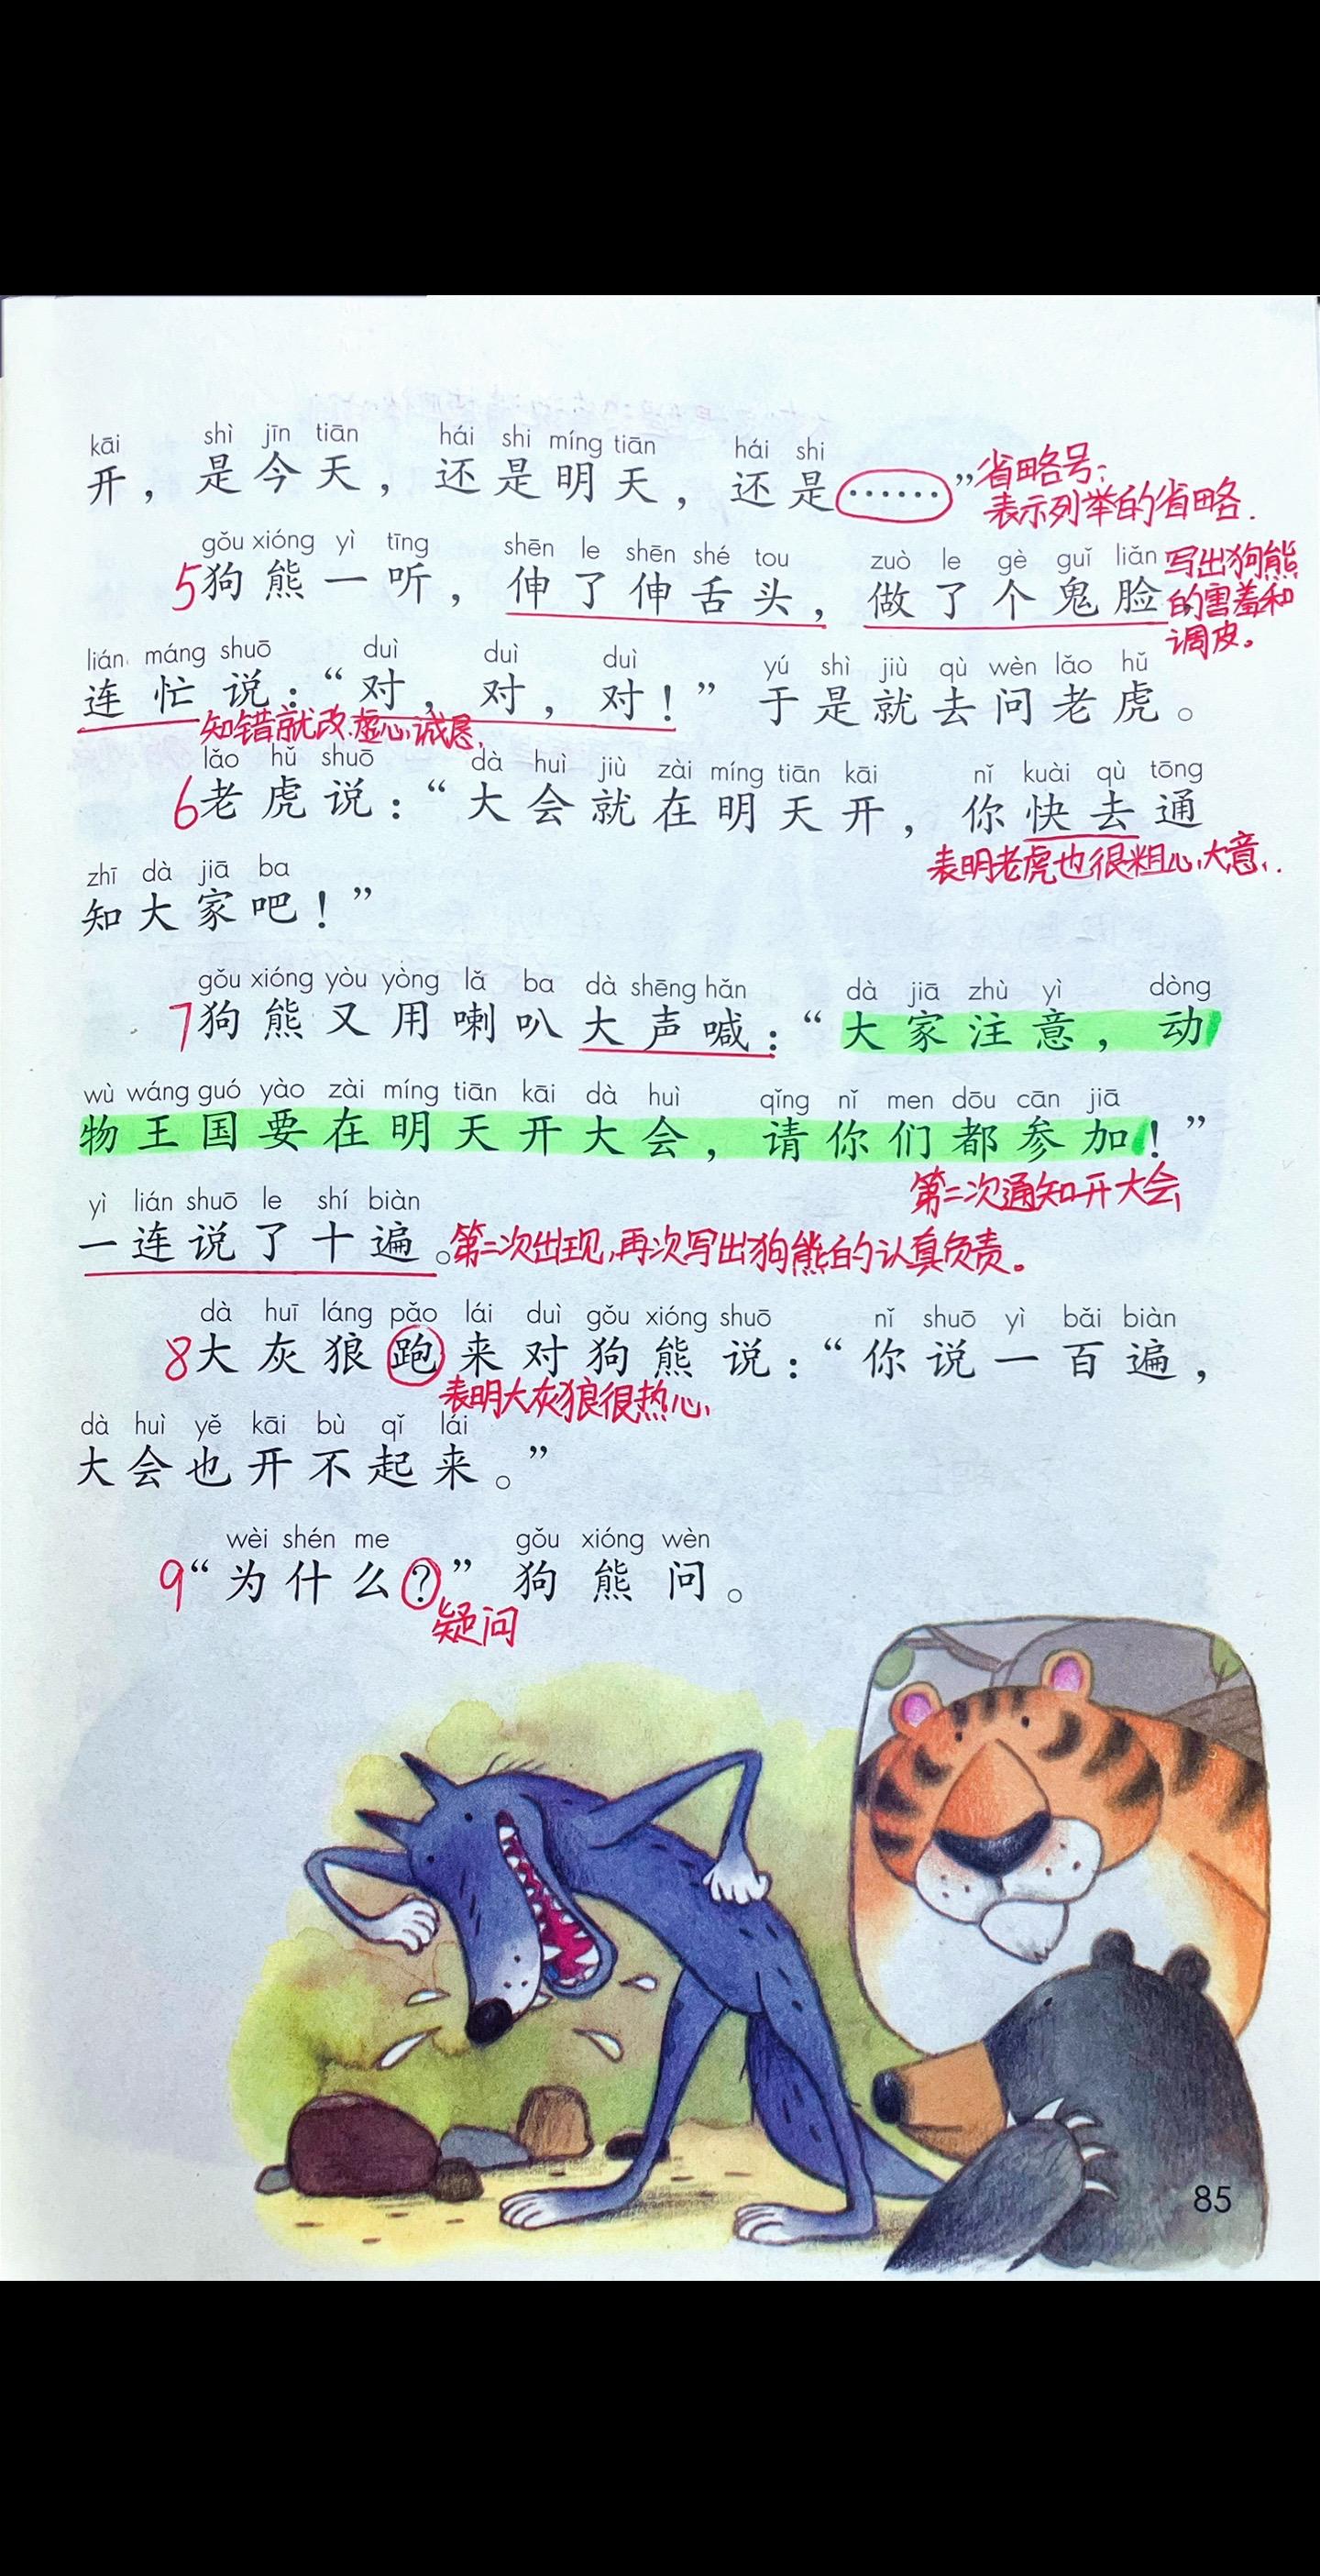 kāi shì jīn tiān hái shi míng tiān hái shi
开，是今天，还是明天，还是……”省略号：
表示列举的省略.
gǒu xióng yì tīng shēn le shēn shé tou zuò le gè guǐ liǎn
5狗熊一听，伸了伸舌头，做了个鬼脸，写出狗熊
的害羞和
调皮。
lián máng shuō duì duì duì yú shì jiù qù wèn lǎo hǔ
连忙说：“对，对，对！”于是就去问老虎。
知错就改、虚心、诚恳、
lǎo hǔ shuō dà huì jiù zài míng tiān kāi nǐ kuài qù tōng
6老虎说：“大会就在明天开，你快去通
表明老虎也很粗心、大意、.
zhī dà jiā ba
知大家吧！”
gǒu xióng yòu yòng lǎ ba dà shēng hǎn dà jiā zhù yì dòng
7狗熊又用喇叭大声喊：“大家注意，动
wù wáng guó yào zài míng tiān kāi dà huì qǐng nǐ men dōu cān jiā
物王国要在明天开大会，请你们都参加！”
第二次通知开大会
yì lián shuō le shí biàn
一连说了十遍。第二次出现,再次写出狗熊的认真负责。
dà huī láng pǎo lái duì gǒu xióng shuō nǐ shuō yì bǎi biàn
8大灰狼跑来对狗熊说：“你说一百遍，
表明大灰狼很热心、
dà huì yě kāi bù qǐ lái
大会也开不起来。”
wèi shén me gǒu xióng wèn
9“为什么？”狗熊问。
疑问
85